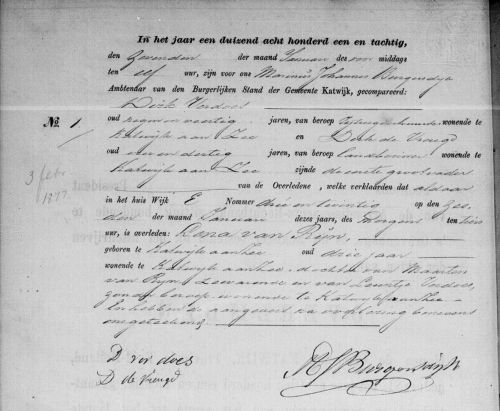 In het jaar een duizend acht honderd een en tachtig,
den Zevenden der maand Januari des voor middags
ten elf uur, zijn voor ons Marinus Johannes
Ambtenaar van den Burgerlijken Stand der Gemeente Katwijk, gecompareerd:
Dirk Verdoes
Nº 1
oud negen en veertig jaren, van beroep wonende te
Katwijk aan Zee en Dirk de Vreugd
oud een en dertig jaren, van beroep wonende te
Katwijk aan Zee zijnde de eerste grootvader
van de Overledene, welke verklaarden dat aldaar
3 febr
1877
in het huis Wijk E Nommer drie en twintig op den Zes
den der maand Januari dezes jaars, des morgens ten
uur, is overleden: van Rijn,
geboren te Katwijk aan Zee oud drie jaar
wonende te Katwijk aan Zee, dochter van Maarten
van Rijn, Zeevarende en van Leuntje Verdoes,
zonder beroep wonende te Katwijk aan Zee
En hebben de aangevers na voorlezing benevens
ons geteekend
D ver does
D de Vreugd